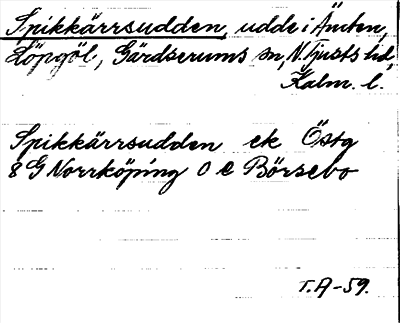 Spikkärrsudden, udde i Ämten,
Löpgöl, Gärdserums sn, N. Tjusts hd,
Kalm. l.
Spikkärrsudden ek Östg
8G Norrköping 0 e Börsebo
T.A-59.